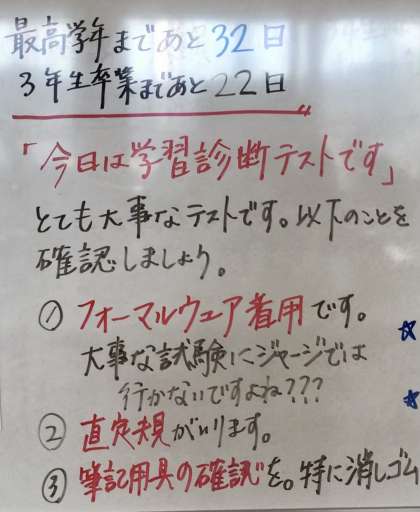 最高学年まであと32日
3年生卒業まであと22日
「今日は学習診断テストです」
とても大事なテストです。以下のことを
確認しましょう。
① フォーマルウェア着用です。
大事な試験にジャージでは
行かないですよね???
② 直定規がいります。
③ 筆記用具の確認を。特に消しゴム